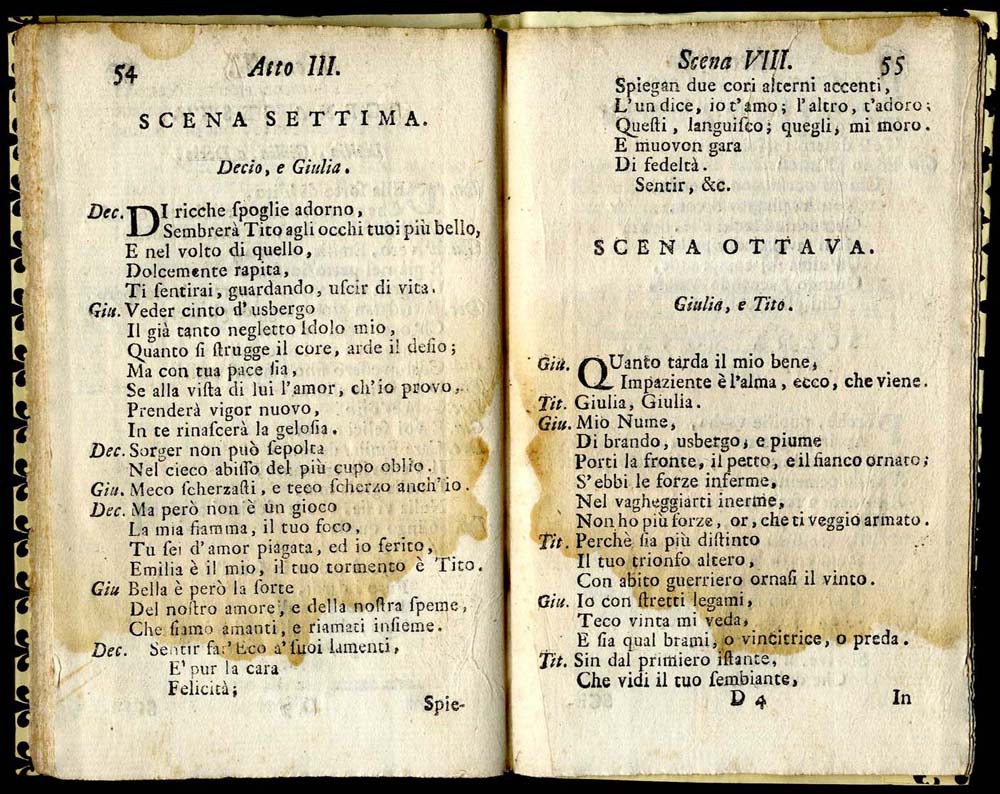 54 Atto III.
SCENA SETTIMA.
Decio, e Giulia.
Dec. DI ricche ſpoglie adorno,
Sembrerà Tito agli occhi tuoi più bello,
E nel volto di quello,
Dolcemente rapita,
Ti ſentirai, guardando, uſcir di vita.
Giu. Veder cinto d'usbergo
Il già tanto negletto Idolo mio,
Quanto ſi ſtrugge il core, arde il deſio;
Ma con tua pace ſia,
Se alla viſta di lui l'amor, ch'io provo,
Prenderà vigor nuovo,
In te rinaſcerà la geloſia.
Dec. Sorger non può ſepolta
Nel cieco abiſſo del più cupo oblio.
Giu. Meco ſcherzaſti, e teco ſcherzo anch'io.
Dec. Ma però non è un gioco
La mia fiamma, il tuo foco,
Tu ſei d'amor piagata, ed io ferito,
Emilia è il mio, il tuo tormento è Tito.
Giu Bella è però la ſorte
Del noſtro amore, e della noſtra ſpeme,
Che ſiamo amanti, e riamati inſieme.
Dec. Sentir far' Eco a' ſuoi lamenti,
E' pur la cara
Felicità;
Spie-
Scena VIII. 55
Spiegan due cori alterni accenti,
L'un dice, io t'amo; l'altro, t'adoro;
Queſti, languiſco; quegli, mi moro.
E muovon gara
Di fedeltà.
Sentir, &c.
SCENA OTTAVA.
Giulia, e Tito.
Giu. QUanto tarda il mio bene,
Impaziente è l'alma, ecco, che viene.
Tit. Giulia, Giulia.
Giu. Mio Nume,
Di brando, usbergo, e piume
Porti la fronte, il petto, e il fianco ornato;
S'ebbi le forze inferme,
Nel vagheggiarti inerme,
Non ho più forze, or, che ti veggio armato.
Tit. Perchè ſia più diſtinto
Il tuo trionfo altero,
Con abito guerriero ornaſi il vinto.
Giu. Io con ſtretti legami,
Teco vinta mi veda,
E ſia qual brami, o vincitrice, o preda.
Tit. Sin dal primiero iſtante,
Che vidi il tuo ſembiante,
D 4 In